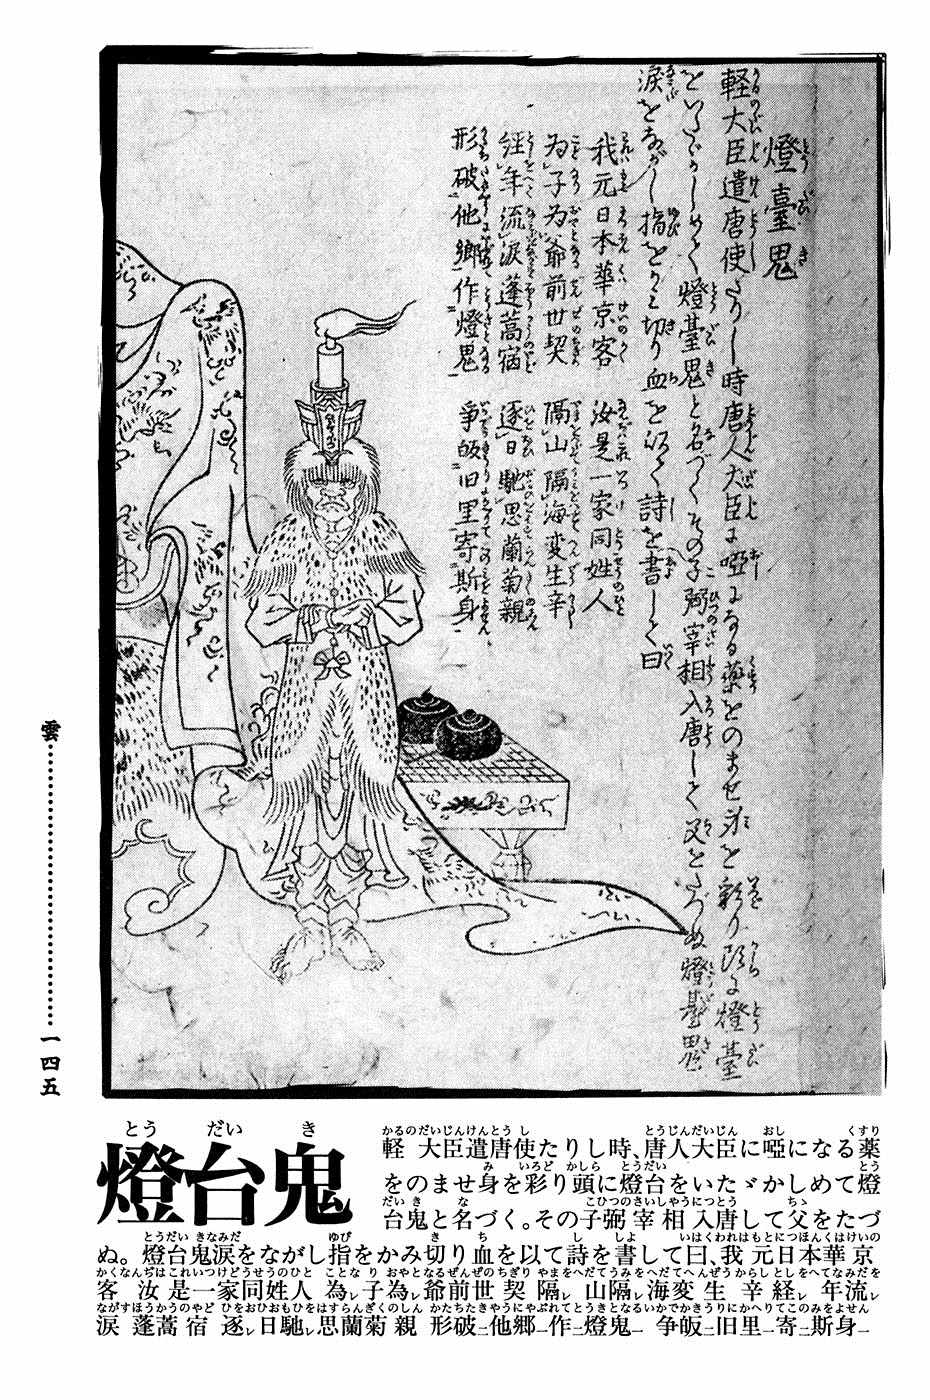 燈臺鬼
軽大臣遣唐使たりし時唐人大臣に啞になる薬をのませ身を彩り頭に燈臺
をいたゞかしめて燈臺鬼と名づくその子弼宰相入唐して父をたづぬ燈臺鬼
涙をながし指をかみ切り血を以て詩を書して曰
我元日本華京客 汝是一家同姓人
為子為爺前世契 隔山隔海変生辛
経年流涙蓬蒿宿 逐日馳思蘭菊親
形破他郷作燈鬼 争皈旧里寄斯身
雲…………………………一四五
燈台鬼
とうだいき
軽大臣遣唐使たりし時、唐人大臣に啞になる薬
をのませ身を彩り頭に燈台をいたゞかしめて燈
台鬼と名づく。その子弼宰相入唐して父をたづ
ぬ。燈台鬼涙をながし指をかみ切り血を以て詩を書して曰、我元日本華京
客 汝是一家同姓人 為レ子為レ爺前世契 隔レ山隔レ海変生辛 経レ年流レ
涙蓬蒿宿 逐レ日馳レ思蘭菊親 形破二他郷一作二燈鬼一 争皈二旧里一寄二斯身一